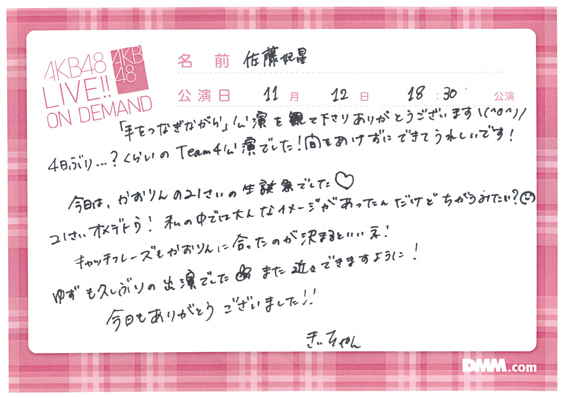 AKB48
LIVE!!
ON DEMAND
AKB
48
名前 佐藤妃星
公演日 11月 12日 18:30 公演
「手をつなぎながら」公演を観て下さりありがとうございます\(^o^)/
4日ぶり…?くらいのTeam4公演でした!間をあけずにできてうれしいです!
今日は、かおりんの21さいの生誕祭でした♡
21さいオメデトウ!私の中では大人なイメージがあったんだけどちがうみたい?
キャッチフレーズもかおりんに合ったのが決まるといいネ!
ゆずも久しぶりの出演でした また近々できますように!
今日もありがとうございました!!
きぃちゃん
DMM.com